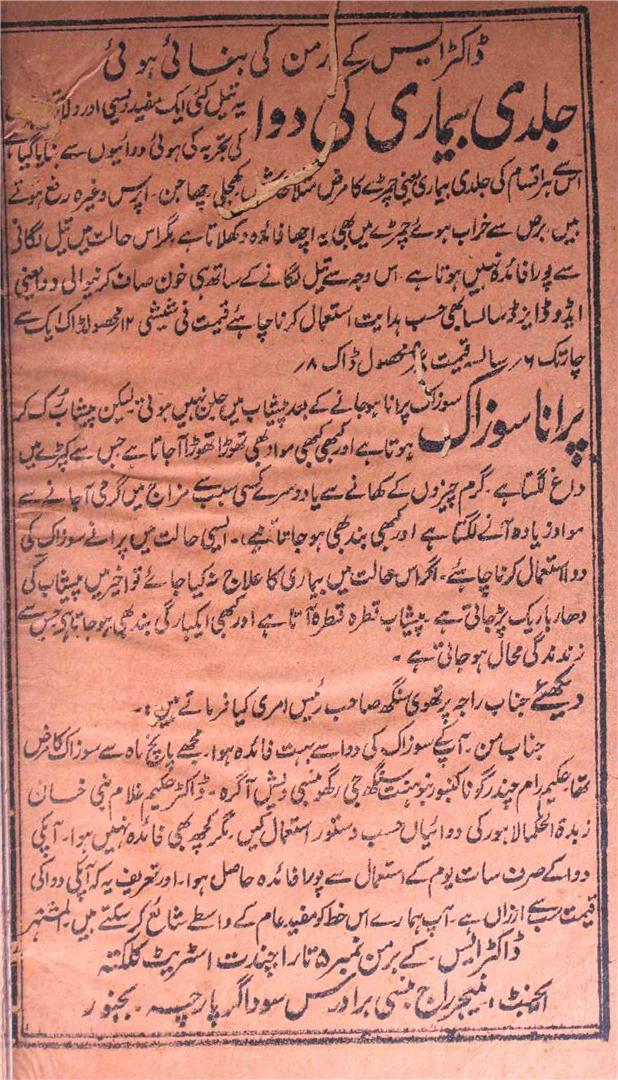 ڈاکٹر ایس کے برمن کی بنائی ہوئی
جلدی بیماری کی دوا
یہ تیل کئی ایک مفید دیسی اور ولایتی
کی تجربہ کی ہوئی دوائیوں سے بنایا گیا ہے
اس سے ہر اقسام کی جلدی بیماری یعنی چمڑے کا مرض مثلاً خارش کھجلی چھاجن۔ اپرس وغیرہ رفع ہوتے
ہیں برص سے خراب ہوئے چمڑے میں بھی یہ اچھا فائدہ دکھلاتا ہے مگر اس حالت میں تیل لگانی
سے پورا فائدہ نہیں ہوتا ہے۔ اس وجہ سے تیل لگانے کے ساتھ ہی خون صاف کرنیوالی دوا یعنی
ایڈوڈایزڈ سالسا بھی حسب ہدایت استعمال کرنا چاہئے قیمت فی شیشی ۱۲؍ محصولڈاک ایک سے
چار تک ۶؍ سالسہ قیمت محصول ڈاک ۸؍
پرانا سوزاک
سوزاک پرانا ہو جانے کے بعد پیشاب میں جلن نہیں ہوتی لیکن پیشاب رک رک کر
ہوتا ہے اور کبھی کبھی مواد بھی تھوڑا تھوڑا آجاتا ہے جس سے کپڑے میں
داغ لگتا ہے۔ گرم چیزوں کے کھانے سے یا دوسرے کسی سبب سے مزاج میں گرمی آجانے سے
مواد زیادہ آنے لگتا ہے اور کبھی بند بھی ہو جاتا ہے۔ ایسی حالت میں پرانے سوزاک کی
دوا استعمال کرنا چاہئے۔ اگر اس حالت میں بیماری کا علاج نہ کیا جائے تو اخیر میں پیشاب کی
دھار باریک پڑ جاتی ہے۔ پیشاب قطرہ قطرہ آتا ہے اور کبھی ایکبارگی بند بھی ہو جاتا ہے جس سے
زندگی محال ہو جاتی ہے۔
دیکھئے جناب راجہ پرتھوی سنگھ صاحب رئیس امری کیا فرماتے ہیں:۔
جناب من۔ آپکے سوزاک کی دوا سے بہت فائدہ ہوا۔ مجھے پانچ ماہ سے سوزاک کا مرض
تھا۔ حکیم رام چندر گونا کنپور نونہنت سنگھ جی رگھو بنسی دیش آگرہ۔ ڈاکٹر حکیم غلام نبی خان
زبدۃ الحکما لاہور کی دوائیاں حسب دستور استعمال کیں۔ مگر کچھ بھی فائدہ نہیں ہوا۔ آپکی
دوا کے صرف سات یوم کے استعمال سے پورا فائدہ حاصل ہوا۔ اور تعریف یہ کہ آپکی دوا کی
قیمت سب سے ارزاں ہے۔ آپ ہمارے اس خط کو مفید عام کے واسطے شائع کر سکتے ہیں۔ المشتہر
ڈاکٹر ایس۔ کے برمن نمبر ۵ تارا چندت اسٹریٹ کلکتہ
ایجنٹ، منیجر راج بنسی برادرس سوداگر پارچہ۔ بجنور